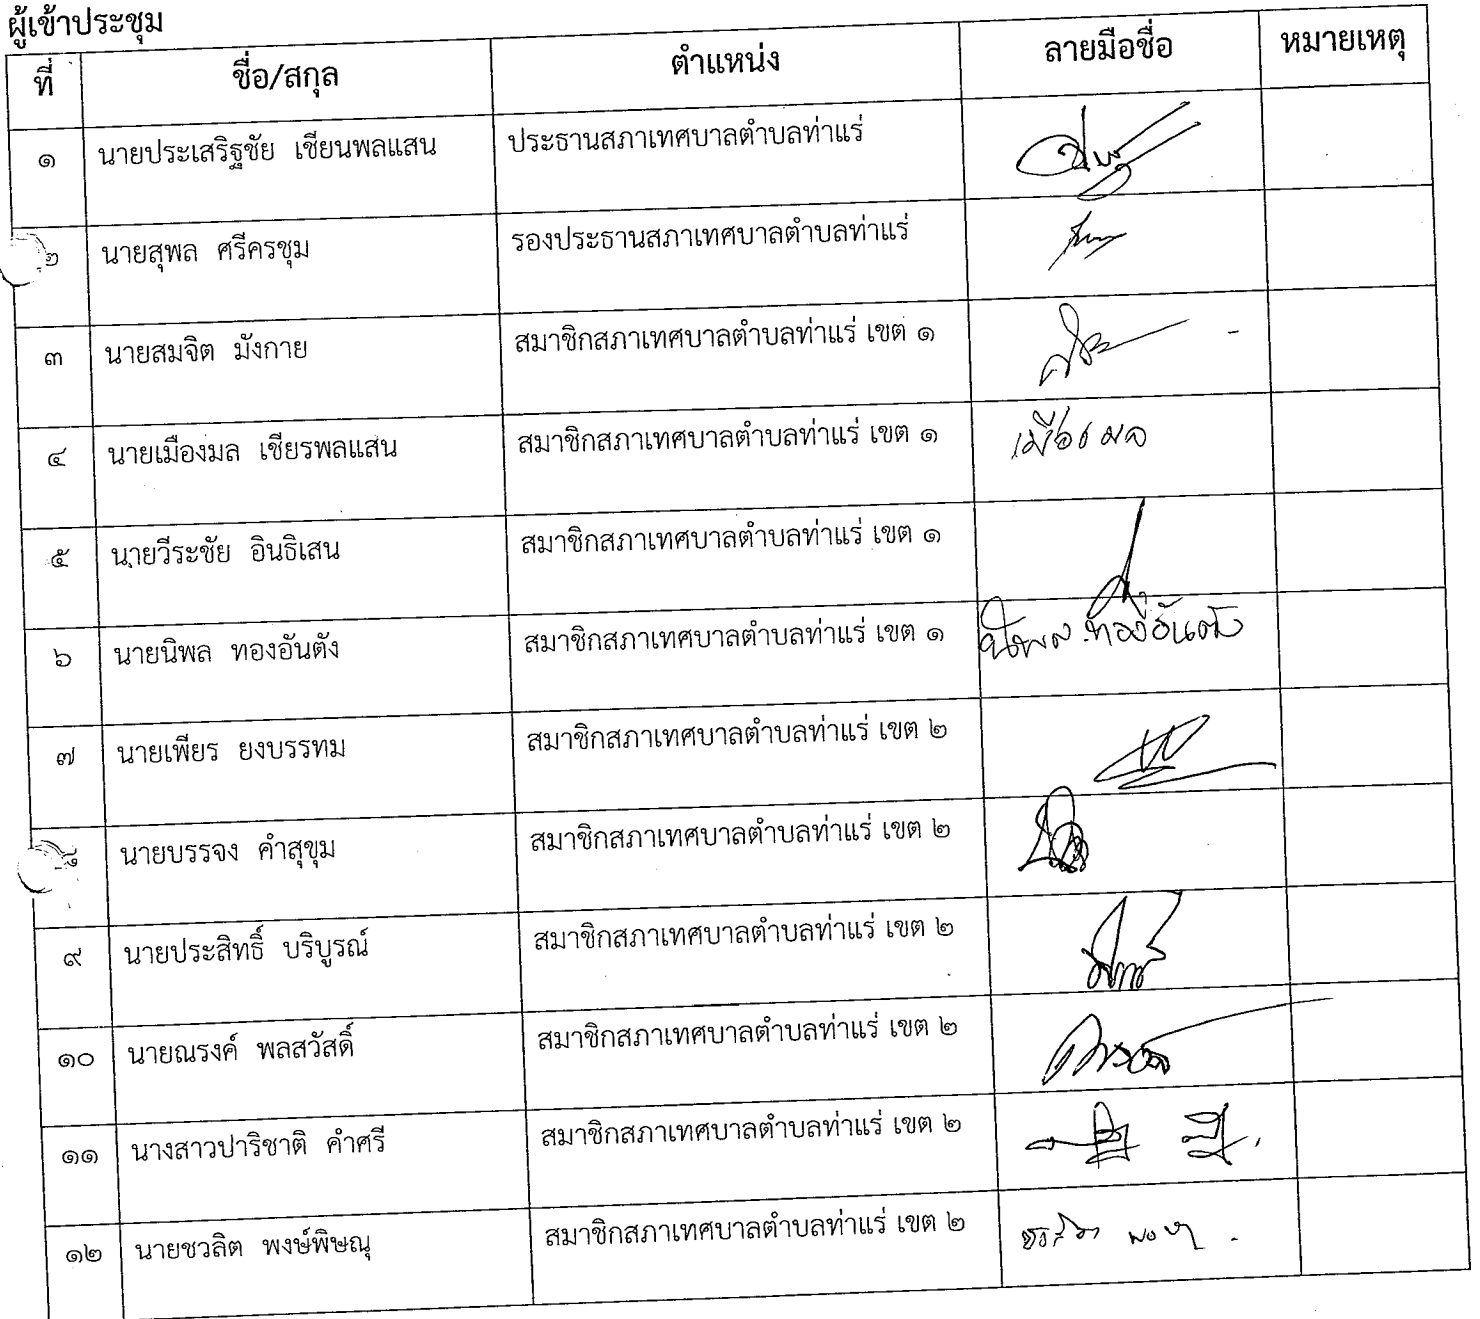 ผู้เข้าประชุม
ที่ ชื่อ/สกุล ตำแหน่ง ลายมือชื่อ หมายเหตุ
๑ นายประเสริฐชัย เชียนพลแสน ประธานสภาเทศบาลตำบลท่าแร่
๒ นายสุพล ศรีครชุม รองประธานสภาเทศบาลตำบลท่าแร่
๓ นายสมจิต มังกาย สมาชิกสภาเทศบาลตำบลท่าแร่ เขต ๑ -
๔ นายเมืองมล เชียรพลแสน สมาชิกสภาเทศบาลตำบลท่าแร่ เขต ๑ เมืองมล
๕ นายวีระชัย อินธิเสน สมาชิกสภาเทศบาลตำบลท่าแร่ เขต ๑
๖ นายนิพล ทองอันตัง สมาชิกสภาเทศบาลตำบลท่าแร่ เขต ๑ นิพล ทองอันตัง
๗ นายเพียร ยงบรรทม สมาชิกสภาเทศบาลตำบลท่าแร่ เขต ๒
๘ นายบรรจง คำสุขุม สมาชิกสภาเทศบาลตำบลท่าแร่ เขต ๒
๙ นายประสิทธิ์ บริบูรณ์ สมาชิกสภาเทศบาลตำบลท่าแร่ เขต ๒
๑๐ นายณรงค์ พลสวัสดิ์ สมาชิกสภาเทศบาลตำบลท่าแร่ เขต ๒
๑๑ นางสาวปาริชาติ คำศรี สมาชิกสภาเทศบาลตำบลท่าแร่ เขต ๒
๑๒ นายชวลิต พงษ์พิษณุ สมาชิกสภาเทศบาลตำบลท่าแร่ เขต ๒